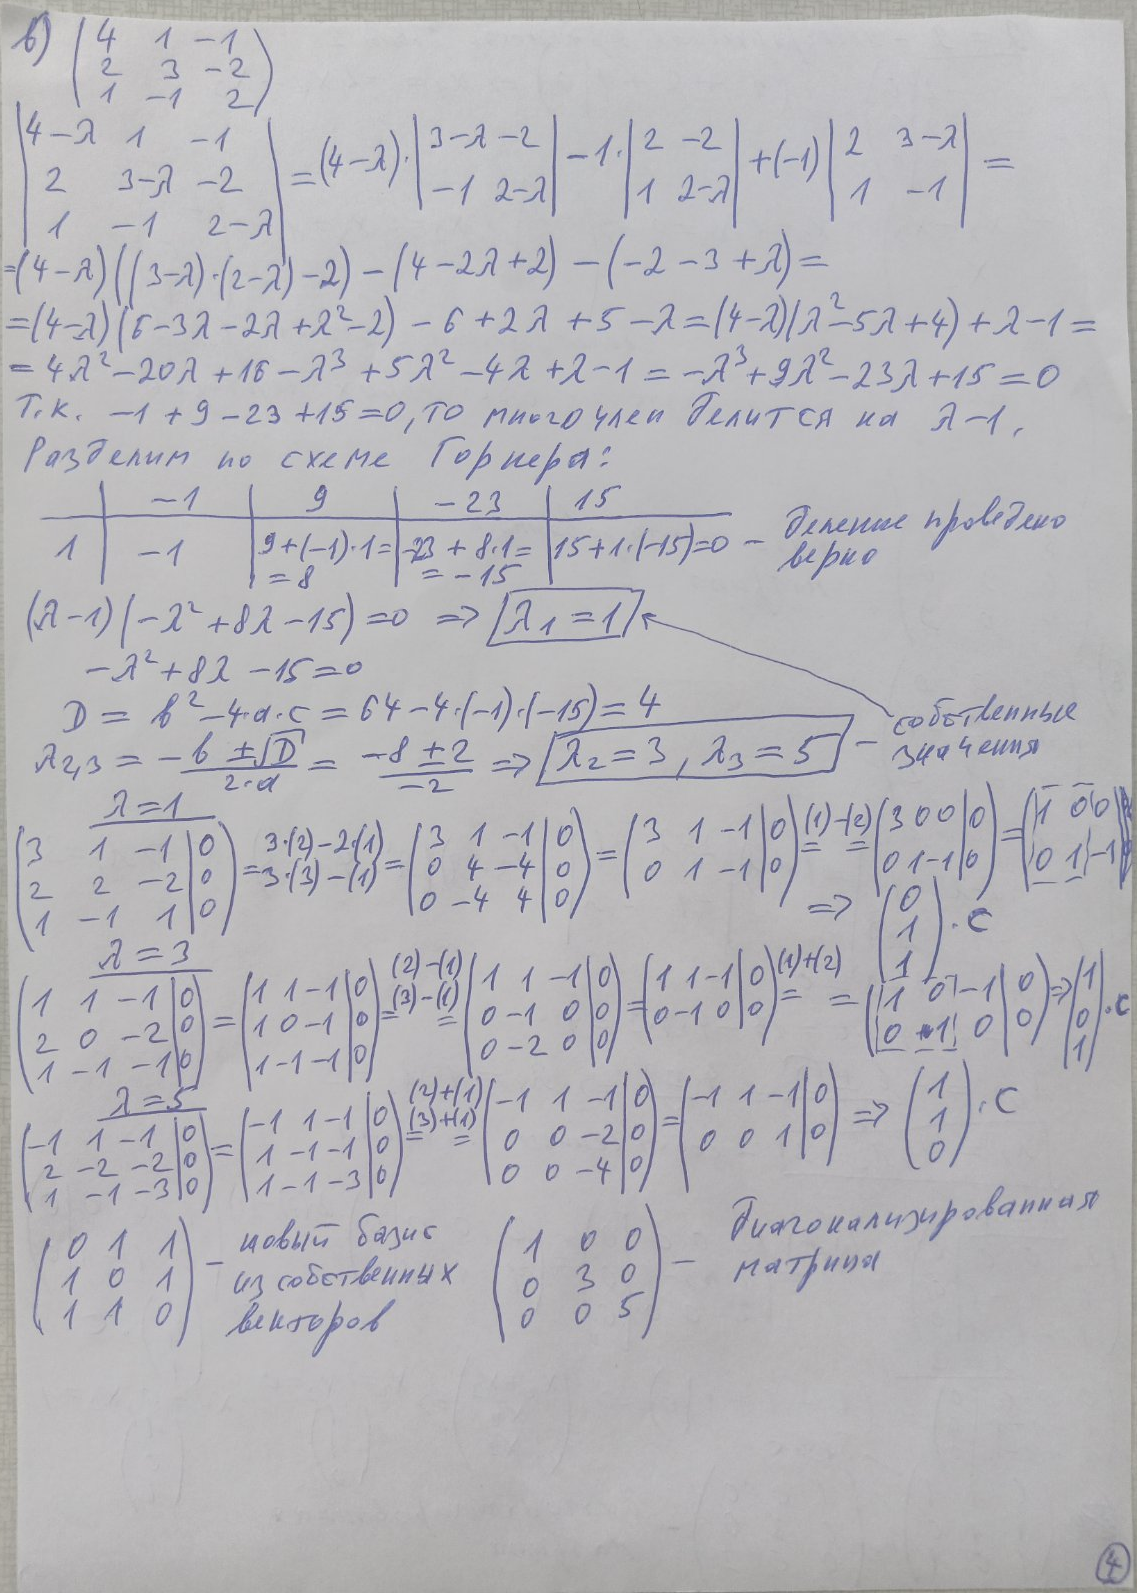 в) (4 1 -1
2 3 -2
1 -1 2)
|4-λ 1 -1
2 3-λ -2
1 -1 2-λ| = (4-λ)·|3-λ -2
-1 2-λ| -1·|2 -2
1 2-λ| +(-1)|2 3-λ
1 -1| =
=(4-λ)((3-λ)·(2-λ)-2)-(4-2λ+2)-(-2-3+λ)=
=(4-λ)(6-3λ-2λ+λ²-2)-6+2λ+5-λ=(4-λ)(λ²-5λ+4)+λ-1=
=4λ²-20λ+16-λ³+5λ²-4λ+λ-1=-λ³+9λ²-23λ+15=0
Т.к. -1+9-23+15=0, то многочлен делится на λ-1.
Разделим по схеме Горнера:
-1 | 9 | -23 | 15
1 | -1 | 9+(-1)·1= | -23+8·1= | 15+1·(-15)=0 - деление проведено
=8 =-15 верно
(λ-1)(-λ²+8λ-15)=0 => λ₁=1
-λ²+8λ-15=0
D = b²-4·a·c = 64-4·(-1)·(-15)=4
λ₂,₃ = -b±√D/2·a = -8±2/-2 => λ₂=3, λ₃=5 - собственные
значения
λ=1
(3 1 -1|0
2 2 -2|0
1 -1 1|0) = 3·(2)-2·(1)
3·(3)-(1) = (3 1 -1|0
0 4 -4|0
0 -4 4|0) = (3 1 -1|0
0 1 -1|0) (1)-(2) = = (3 0 0|0
0 1 -1|0) = (1 0 0|
0 1 -1|
=> (0
1
1)·C
λ=3
(1 1 -1|0
2 0 -2|0
1 -1 -1|0) = (1 1 -1|0
1 0 -1|0
1 -1 -1|0) (2)-(1)
(3)-(1) = = (1 1 -1|0
0 -1 0|0
0 -2 0|0) = (1 1 -1|0
0 -1 0|0) (1)+(2) = = (1 0 -1|0
0 1 0|0) => (1
0
1)·C
λ=5
(-1 1 -1|0
2 -2 -2|0
1 -1 -3|0) = (-1 1 -1|0
1 -1 -1|0
1 -1 -3|0) (2)+(1)
(3)+(1) = = (-1 1 -1|0
0 0 -2|0
0 0 -4|0) = (-1 1 -1|0
0 0 1|0) => (1
1
0)·C
(0 1 1
1 0 1
1 1 0) - новый базис
из собственных
векторов
(1 0 0
0 3 0
0 0 5) - диагонализированная
матрица
4